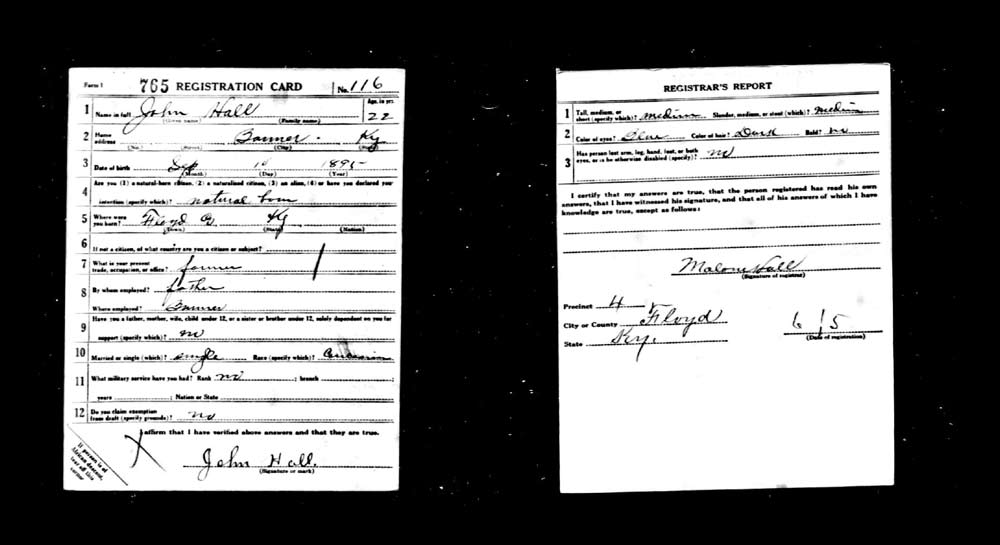 Form 1 765 REGISTRATION CARD No. 116
1 Name in full John Hall Age, in yrs. 22
(Given name) (Family name)
2 Home address Banner. Ky
(No.) (Street) (City) (State)
3 Date of birth Sep 10 1895
(Month) (Day) (Year)
4 Are you (1) a natural-born citizen, (2) a naturalized citizen, (3) an alien, (4) or have you declared your
intention (specify which)? natural born
5 Where were you born? Floyd Co. Ky
(Town) (State) (Nation)
6 If not a citizen, of what country are you a citizen or subject?
7 What is your present trade, occupation, or office? farmer
8 By whom employed? father
Where employed? Banner
9 Have you a father, mother, wife, child under 12, or a sister or brother under 12, solely dependent on you for
support (specify which)? no
10 Married or single (which)? single Race (specify which)? Caucasian
11 What military service have you had? Rank no ; branch ;
years ; Nation or State
12 Do you claim exemption from draft (specify grounds)? no
I affirm that I have verified above answers and that they are true.
John Hall.
(Signature or mark)
If person is of
African descent,
tear off this
corner
REGISTRAR'S REPORT
1 Tall, medium, or short (specify which)? medium Slender, medium, or stout (which)? medium
2 Color of eyes? Blue Color of hair? Dark Bald? no
3 Has person lost arm, leg, hand, foot, or both
eyes, or is he otherwise disabled (specify)? no
I certify that my answers are true, that the person registered has read his own
answers, that I have witnessed his signature, and that all of his answers of which I have
knowledge are true, except as follows:
Hall
(Signature of registrar)
Precinct 4
City or County Floyd
State Ky.
6/5
(Date of registration)